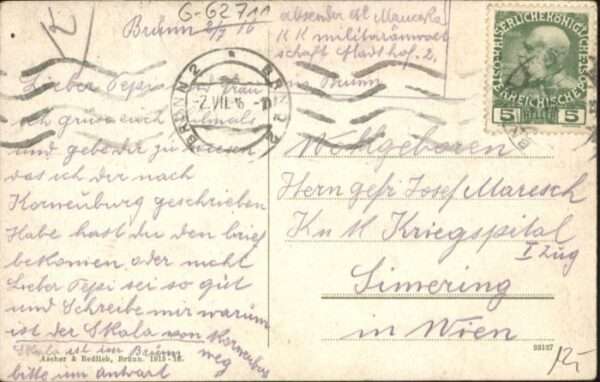 G-62711
Brünn 2/7 16
absender
K K militäranwalt
schaft Stadthof. 2.
Brünn
BRÜNN 2
-2.VII.16
KAISERLICHE KÖNIGLICHE
ÖSTERREICHISCHE POST
5 HELLER 5
Lieber Pepi
ich grüße euch
und gebe dir zu wiesen
das ich dir nach
Korneuburg geschrieben
Habe hast du den brief
bekomen oder nicht
Lieber Pepi sei so gut
und Schreibe mir warum
ist der Skala von Korneuburg
weg
Skala ist in Brünn
bitte um antwort
Wohlgeboren
Herrn gefr Josef Maresch
K u K Kriegspital
I Zug
Simering
in Wien
Ascher & Redlich, Brünn. 1915-16.
93127
12,-